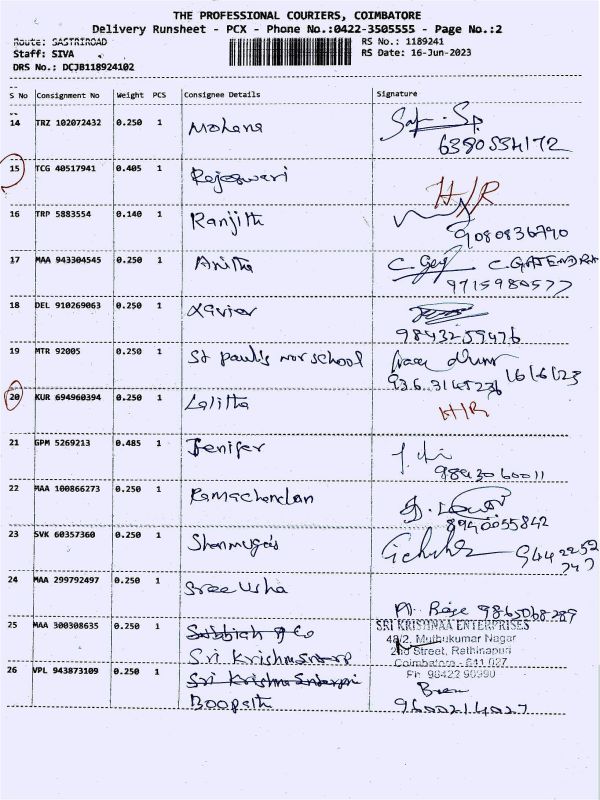 THE PROFESSIONAL COURIERS, COIMBATORE
Delivery Runsheet - PCX - Phone No.:0422-3505555 - Page No.:2
Route: SASTRIROAD
Staff: SIVA
DRS No.: DCJB118924102
RS No.: 1189241
RS Date: 16-Jun-2023
S No Consignment No Weight PCS Consignee Details Signature
14 TRZ 102072432 0.250 1 Mohana
6380534172
15 TCG 40517941 0.405 1 Rajeswari H/R
16 TRP 5883554 0.140 1 Ranjith
9080836790
17 MAA 943304545 0.250 1 Anitha
9715980577
18 DEL 910269063 0.250 1 Xavier
9843259476
19 MTR 92005 0.250 1 St paul's nur school
16/6/23
20 KUR 694960394 0.250 1 Lalitha H/R
21 GPM 5269213 0.485 1 Jenifer
9843060011
22 MAA 100866273 0.250 1 Ramachandan
8940055842
23 SVK 60357360 0.250 1 Shanmugas
9442252
747
24 MAA 299792497 0.250 1 Sree Usha
9865068289
25 MAA 300308635 0.250 1 Subbiah & Co
Sri Krishna
SRI KRISHNAA ENTERPRISES
48/2, Muthukumar Nagar
2nd Street, Rathinapuri
Coimbatore - 641 027
Ph: 98422 90990
26 VPL 943873109 0.250 1 Sri Krishna Enterpri
Boopath
9600214027